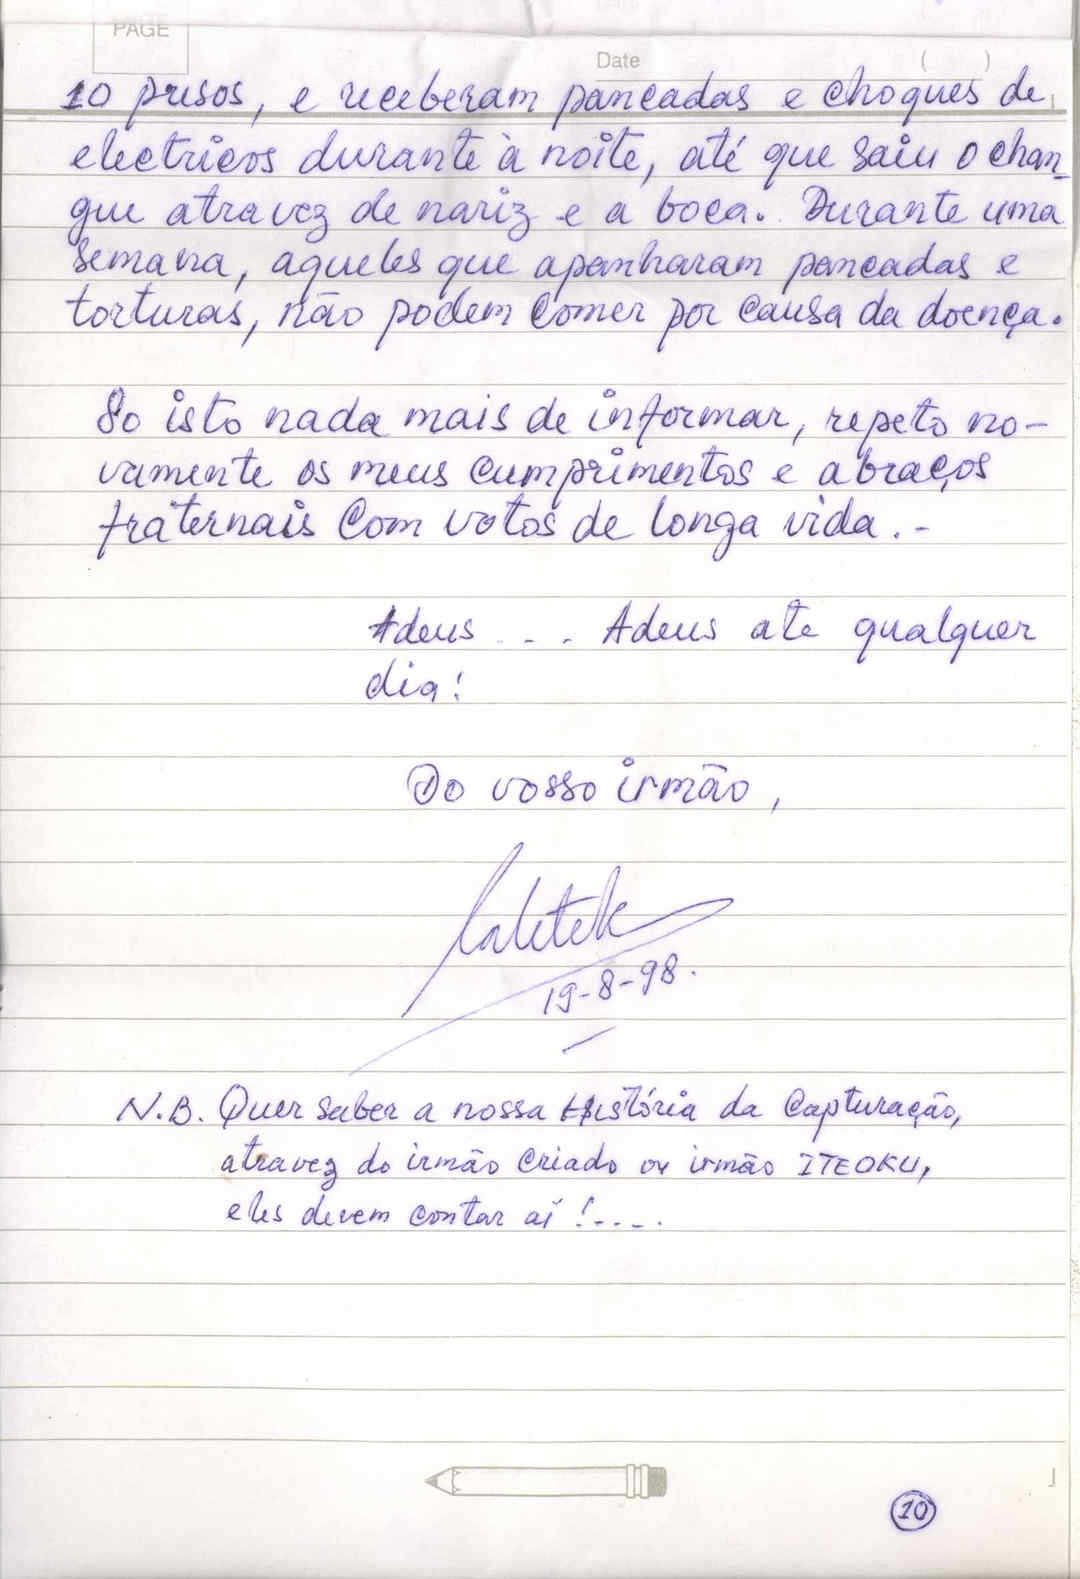 PAGE
Date ( )
10 presos, e receberam pancadas e choques de
electricos durante à noite, até que saiu o chan-
gue atravez de nariz e a boca. Durante uma
semana, aqueles que apanharam pancadas e
torturas, não podem comer por causa da doença.
So isto nada mais de informar, repeto no-
vamente os meus cumprimentos e abraços
fraternais com votos de longa vida.-
Adeus ... Adeus ate qualquer
dia!
Do vosso irmão,
19-8-98.
N.B. Quer saber a nossa História da Capturação,
atravez do irmão Criado ou irmão ITEOKU,
eles devem contar aí !.....
10